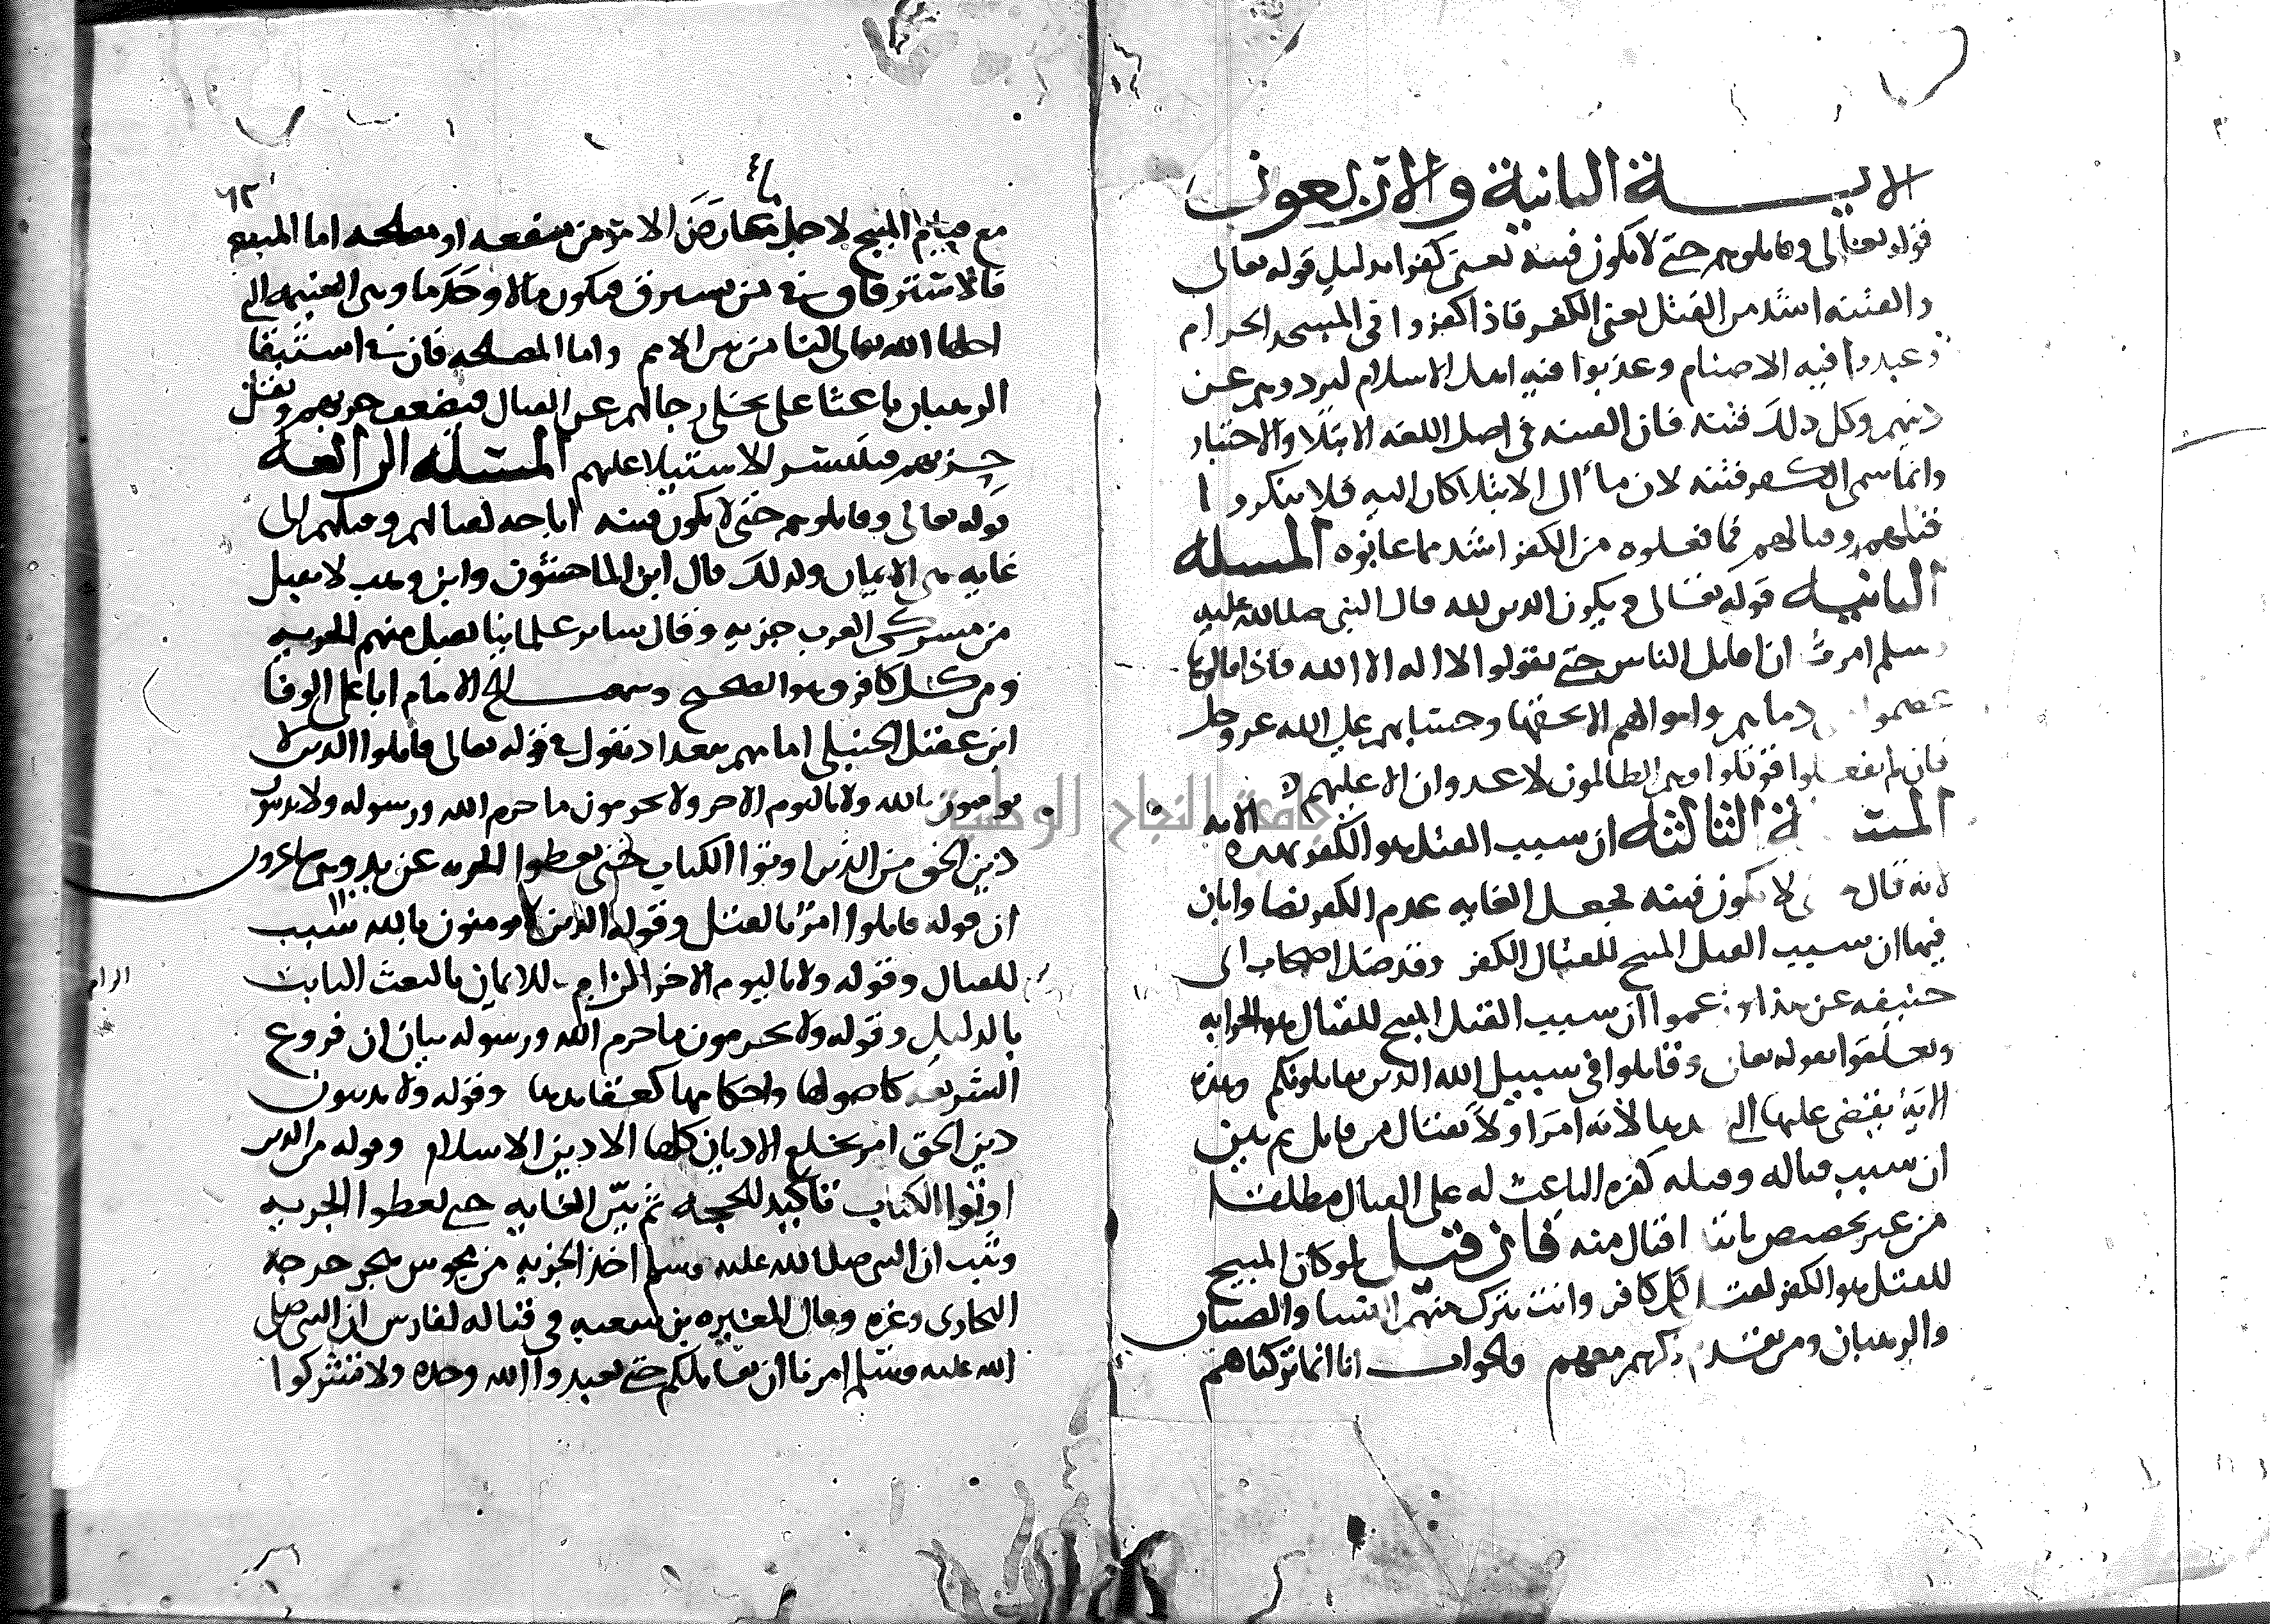 الايـــة الثانية والاربعون
قوله تعالى وقاتلوهم حتى لا تكون فتنة يعنى كفرا بدليل قوله تعالى
والفتنة اشد من القتل يعنى الكفر فاذا كفروا فى المسجد الحرام
وعبدوا فيه الاصنام وعذبوا فيه اهل الاسلام ليردوهم عن
دينهم وكل ذلك فتنة فان الفتنة فى اصل اللغة الابتلا والاختبار
وانما سمى الكفر فتنة لان مآل الابتلا كان اليه فلا ينكروا
قتلهم وقتالهم فما فعلوه من الكفر اشد مما عابوه المسئلة
الثانية قوله تعالى ويكون الدين لله قال النبى صلى الله عليه
وسلم امرت ان اقاتل الناس حتى يقولوا لا اله الا الله فاذا قالوها
عصموا دماهم واموالهم الا بحقها وحسابهم على الله عز وجل
فان لم يفعلوا قوتلوا وهم الظالمون لا عدوان الا عليهم
المسئلة الثالثة ان سبب القتل هو الكفر بهذه الاية
لانه قال حتى لا تكون فتنة فجعل الغاية عدم الكفر نصا وابان
فيها ان سبب القتل المبيح للقتال الكفر وقد ضل اصحاب ابى
حنيفة عن هذا وزعموا ان سبب القتل المبيح للقتال هو الحرابة
وتعلقوا بقوله تعالى وقاتلوا فى سبيل الله الذين يقاتلونكم وهذه
الاية يقضى عليها التى بعدها لانه امر اولا بقتال من قاتل ثم بين
ان سبب قتاله وقتله كفره الباعث له على القتال مطلقا
من غير تخصيص بابتدا قتال منه فان قيل لو كان المبيح
للقتل هو الكفر لقتل كل كافر وانت تترك منهم النسا والصبيان
والرهبان ومن تقدم ذكرهم معهم والجواب انا انما تركناهم
٦٢
مع قيام المبيح لاجل ما عارض الامر من منفعة او مصلحة اما المنفعة
فالاسترقاق فى من يسترق فيكون مالا وخدما وهى الغنيمة التى
احلها الله تعالى لنا من بين الامم واما المصلحة فان فى استبقا
الرهبان باعثا على تخلى رجالهم عن القتال فيضعف حربهم ويقل
حزبهم فينتشر الاستيلا عليهم المسئلة الرابعة
قوله تعالى وقاتلوهم حتى لا تكون فتنة اباحة لقتالهم وقتلهم الى
غاية هى الايمان ولذلك قال ابن الماجشون وابن وهب لا تقبل
من مشركى العرب جزية وقال ساير علماينا تقبل منهم الجزية
ومن كل كافر وهو الصحيح وسمعـــت الشيخ الامام ابا على الوفا
ابن عقيل الحنبلى امامهم ببغداد يقول فى قوله تعالى قاتلوا الذين لا
يومنون بالله ولا باليوم الاخر ولا يحرمون ما حرم الله ورسوله ولا يدينون
دين الحق من الذين اوتوا الكتاب حتى يعطوا الجزية عن يد وهم صاغرون
ان قوله قاتلوا امر بالقتل وقوله الذين لا يومنون بالله سبب
للقتال وقوله ولا باليوم الاخر الزام للايمان بالبعث الثابت
الزام
بالدليل وقوله ولا يحرمون ما حرم الله ورسوله بيان ان فروع
الشريعة كاصولها واحكامها كعقايدها وقوله ولا يدينون
دين الحق امر بخلع الاديان كلها الا دين الاسلام وقوله من الذين
اوتوا الكتاب تاكيد للحجة ثم بين الغاية حتى يعطوا الجزية
وثبت ان النبى صلى الله عليه وسلم اخذ الجزية من مجوس هجر خرجه
البخارى وغيره وقال المغيره بن شعبه فى قتاله لفارس ان النبى صلى
الله عليه وسلم امرنا ان نقاتلكم حتى تعبدوا الله وحده ولا تشركوا
جامعة النجاح الوطنية